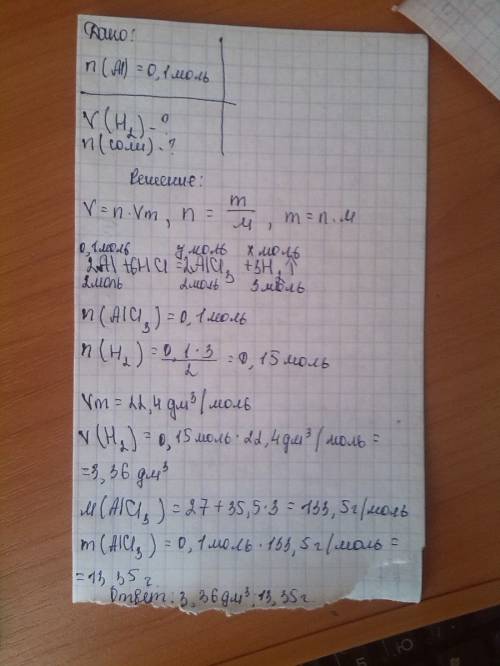 Дано:
n(Al) = 0,1 моль
V(H₂) - ?
n(соли) - ?
Решение:
V = n·Vm, n = m/M, m = n·M
0,1 моль y моль x моль
2Al + 6HCl = 2AlCl₃ + 3H₂↑
2моль 2моль 3 моль
n(AlCl₃) = 0,1 моль
n(H₂) = 0,1·3/2 = 0,15 моль
Vm = 22,4 дм³/моль
V(H₂) = 0,15 моль·22,4 дм³/моль =
= 3,36 дм³
M(AlCl₃) = 27 + 35,5·3 = 133,5 г/моль
m(AlCl₃) = 0,1 моль·133,5 г/моль =
= 13,35 г.
Ответ: 3,36 дм³; 13,35 г.
Ю